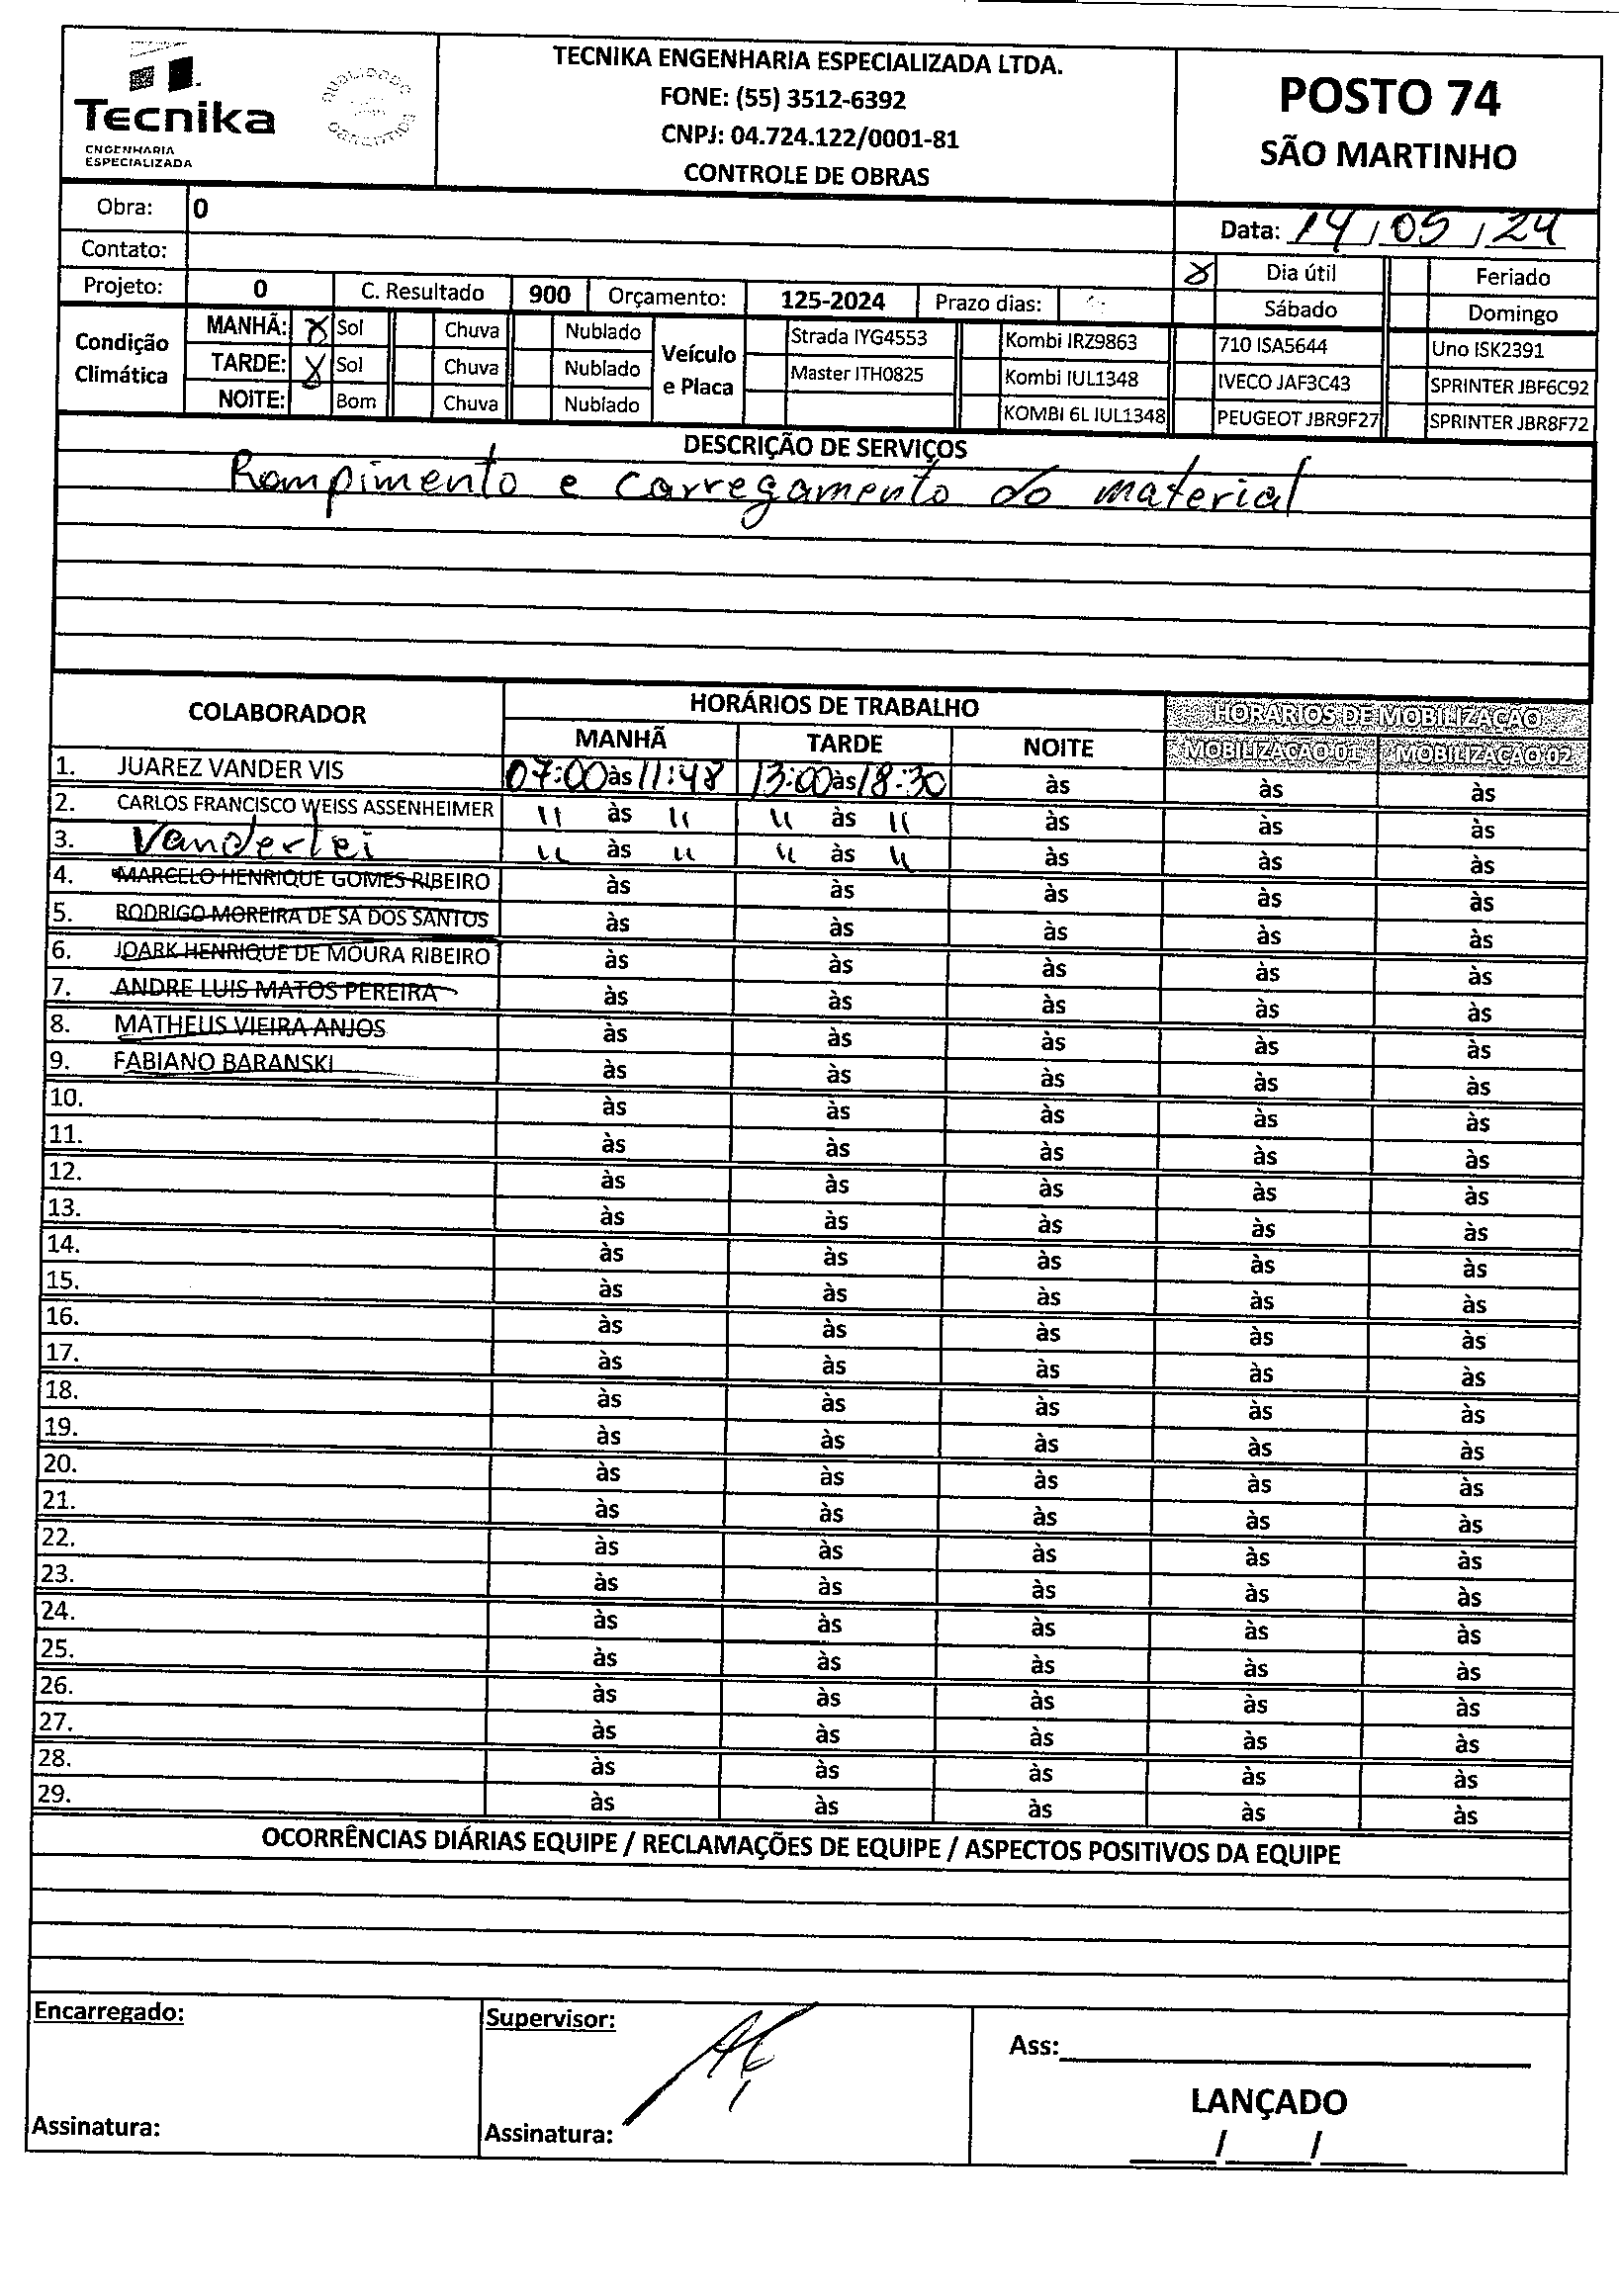 Tecnika
ENGENHARIA
ESPECIALIZADA
QUALIDADE
GARANTIDA
TECNIKA ENGENHARIA ESPECIALIZADA LTDA.
FONE: (55) 3512-6392
CNPJ: 04.724.122/0001-81
CONTROLE DE OBRAS
POSTO 74
SÃO MARTINHO
Obra: 0
Data: 14/05/24
Contato:
Dia útil Feriado
Projeto: 0 C. Resultado 900 Orçamento: 125-2024 Prazo dias:
Sábado Domingo
Condição Climática
MANHÃ: X Sol Chuva Nublado
TARDE: X Sol Chuva Nublado
NOITE: Bom Chuva Nublado
Veículo e Placa
Strada IYG4553 Kombi IRZ9863 710 ISA5644 Uno ISK2391
Master ITH0825 Kombi IUL1348 IVECO JAF3C43 SPRINTER JBF6C92
KOMBI 6L IUL1348 PEUGEOT JBR9F27 SPRINTER JBR8F72
DESCRIÇÃO DE SERVIÇOS
Rompimento e carregamento do material
COLABORADOR HORÁRIOS DE TRABALHO HORÁRIOS DE MOBILIZAÇÃO
MANHÃ TARDE NOITE MOBILIZAÇÃO 01 MOBILIZAÇÃO 02
1. JUAREZ VANDER VIS 07:00 às 11:48 13:00 às 18:30 às às às
2. CARLOS FRANCISCO WEISS ASSENHEIMER " às " " às " às às às
3. Vanderlei " às " " às " às às às
4. MARCELO HENRIQUE GOMES RIBEIRO às às às às às
5. RODRIGO MOREIRA DE SÁ DOS SANTOS às às às às às
6. JOARK HENRIQUE DE MOURA RIBEIRO às às às às às
7. ANDRE LUIS MATOS PEREIRA às às às às às
8. MATHEUS VIEIRA ANJOS às às às às às
9. FABIANO BARANSKI às às às às às
10. às às às às às
11. às às às às às
12. às às às às às
13. às às às às às
14. às às às às às
15. às às às às às
16. às às às às às
17. às às às às às
18. às às às às às
19. às às às às às
20. às às às às às
21. às às às às às
22. às às às às às
23. às às às às às
24. às às às às às
25. às às às às às
26. às às às às às
27. às às às às às
28. às às às às às
29. às às às às às
OCORRÊNCIAS DIÁRIAS EQUIPE / RECLAMAÇÕES DE EQUIPE / ASPECTOS POSITIVOS DA EQUIPE
Encarregado:
Supervisor:
Ass:
LANÇADO
Assinatura:
Assinatura:
/ /